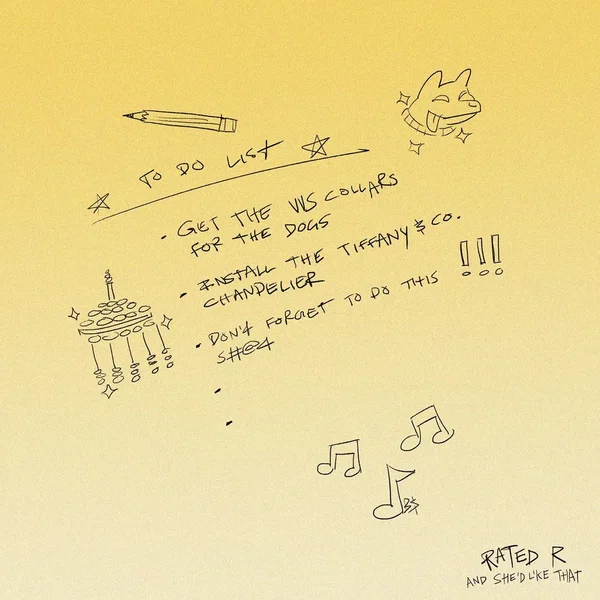 TO DO LIST
· GET THE VVS COLLARS
FOR THE DOGS
· INSTALL THE TIFFANY & CO.
CHANDELIER
· DON'T FORGET TO DO THIS !!!
S#@4
·
·
B$
RATED R
AND SHE'D LIKE THAT